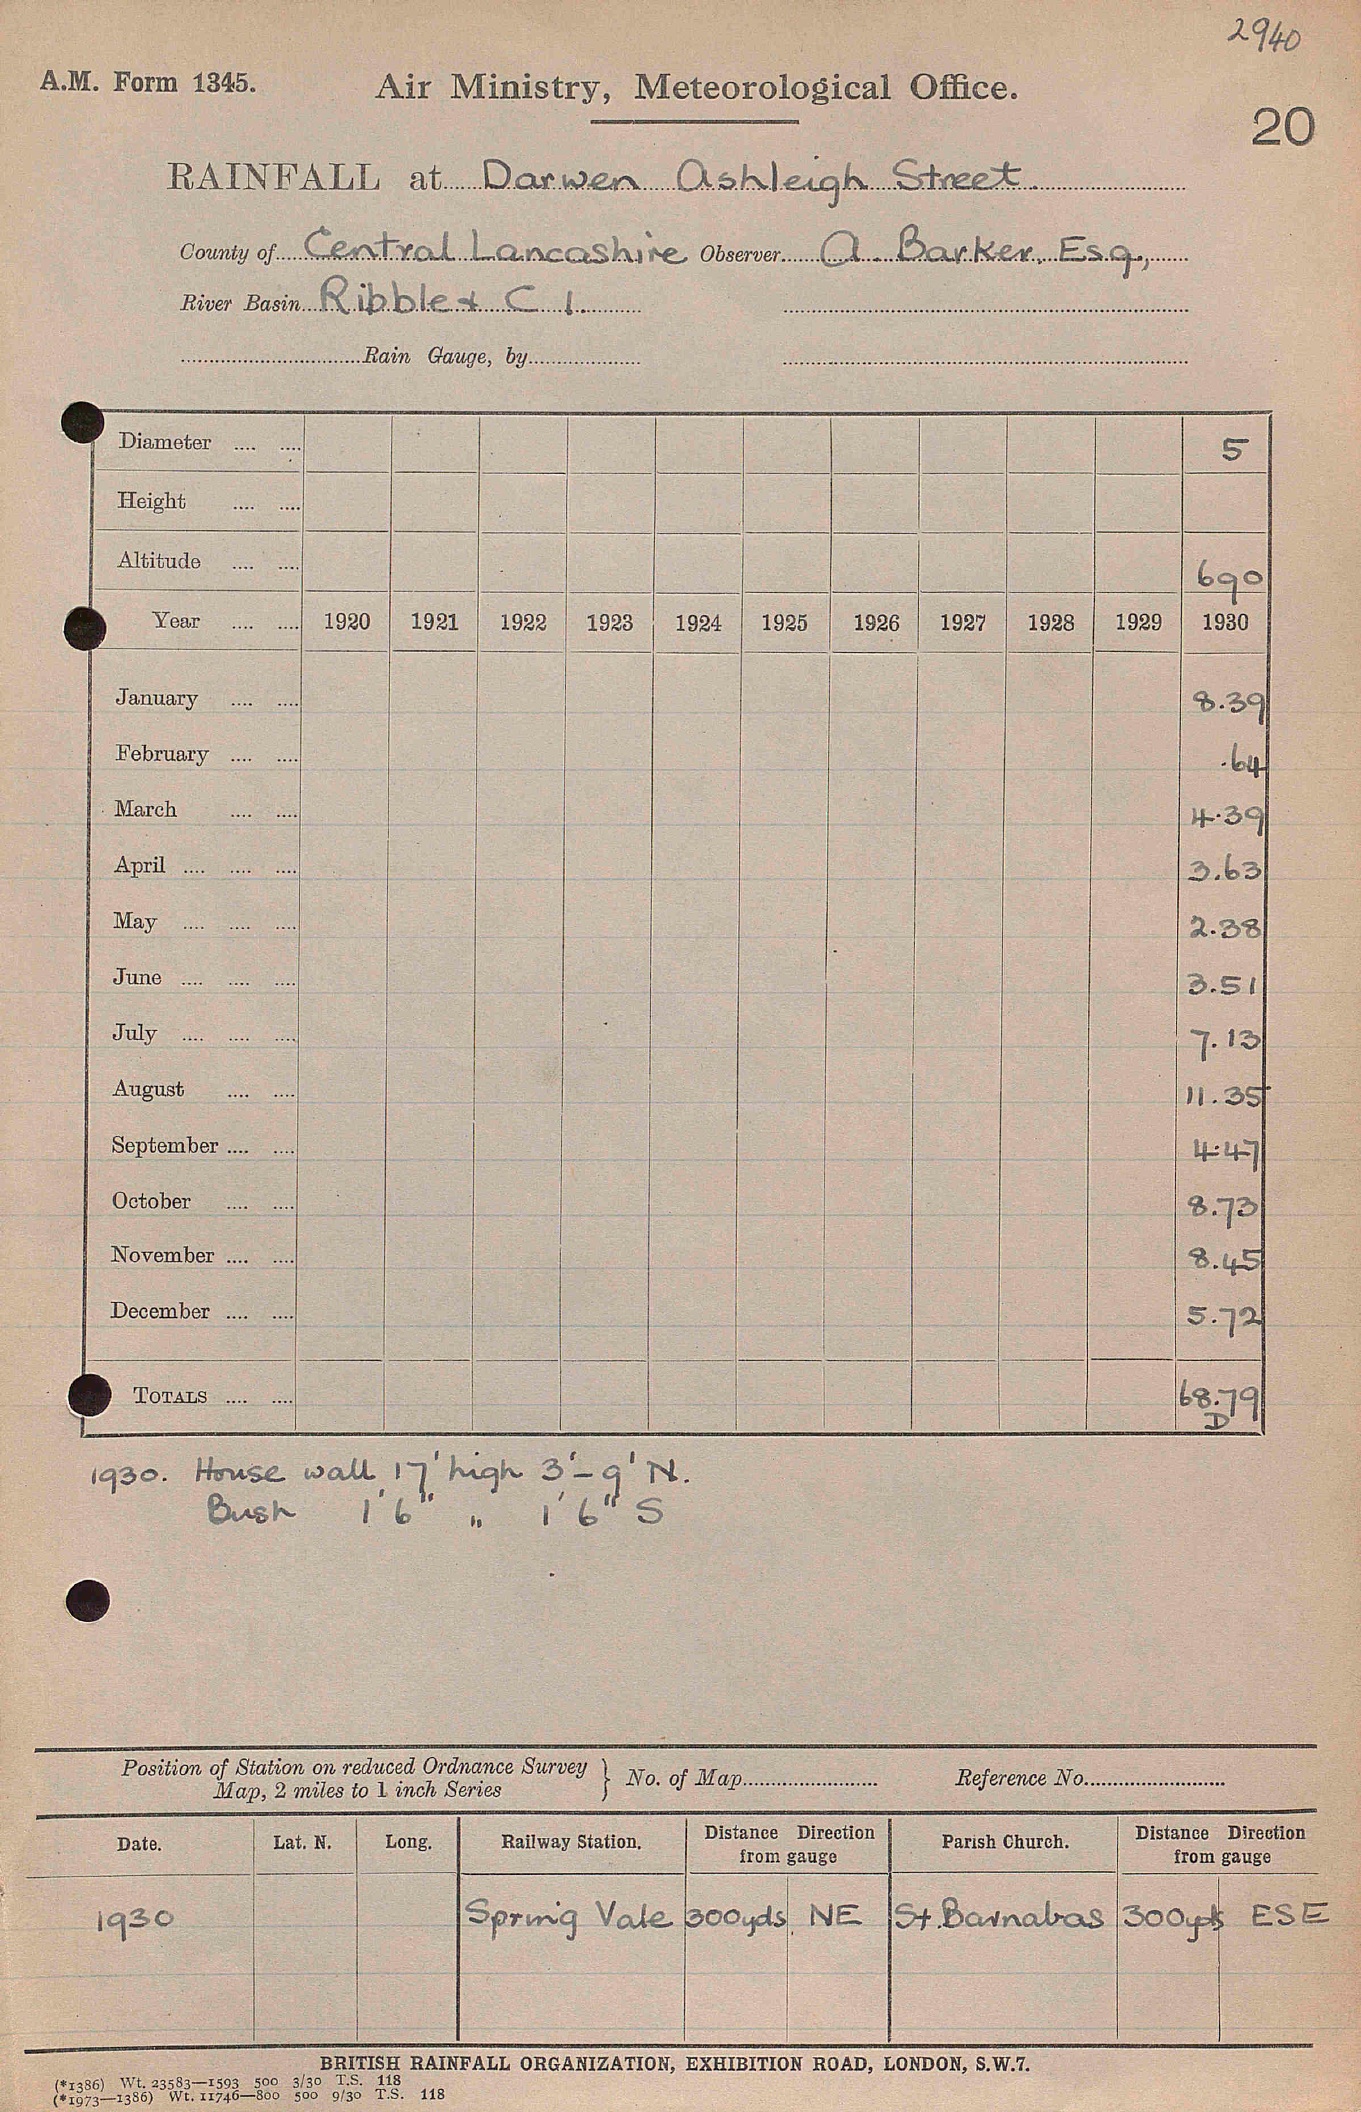 2940
A.M. Form 1345. Air Ministry, Meteorological Office.
20
RAINFALL at Darwen Ashleigh Street.
County of Central Lancashire Observer A. Barker, Esq.,
River Basin Ribble & C 1.
Rain Gauge, by
Diameter .... .... 5
Height .... ....
Altitude .... .... 690
Year .... .... 1920 1921 1922 1923 1924 1925 1926 1927 1928 1929 1930
January .... .... 8.39
February .... .... .64
March .... .... 4.39
April .... .... .... 3.63
May .... .... .... 2.38
June .... .... .... 3.51
July .... .... .... 7.13
August .... .... 11.35
September .... .... 4.47
October .... .... 8.73
November .... .... 8.45
December .... .... 5.72
TOTALS .... .... 68.79
D
1930. House wall 17' high 3'-9' N.
Bush 1'6" " 1'6" S
Position of Station on reduced Ordnance Survey
Map, 2 miles to 1 inch Series } No. of Map Reference No.
Date. Lat. N. Long. Railway Station. Distance Direction from gauge Parish Church. Distance Direction from gauge
1930 Spring Vale 300yds NE St. Barnabas 300yds ESE
BRITISH RAINFALL ORGANIZATION, EXHIBITION ROAD, LONDON, S.W.7.
(*1386) Wt. 23583—1593 500 3/30 T.S. 118
(*1973—1386) Wt. 11746—800 500 9/30 T.S. 118